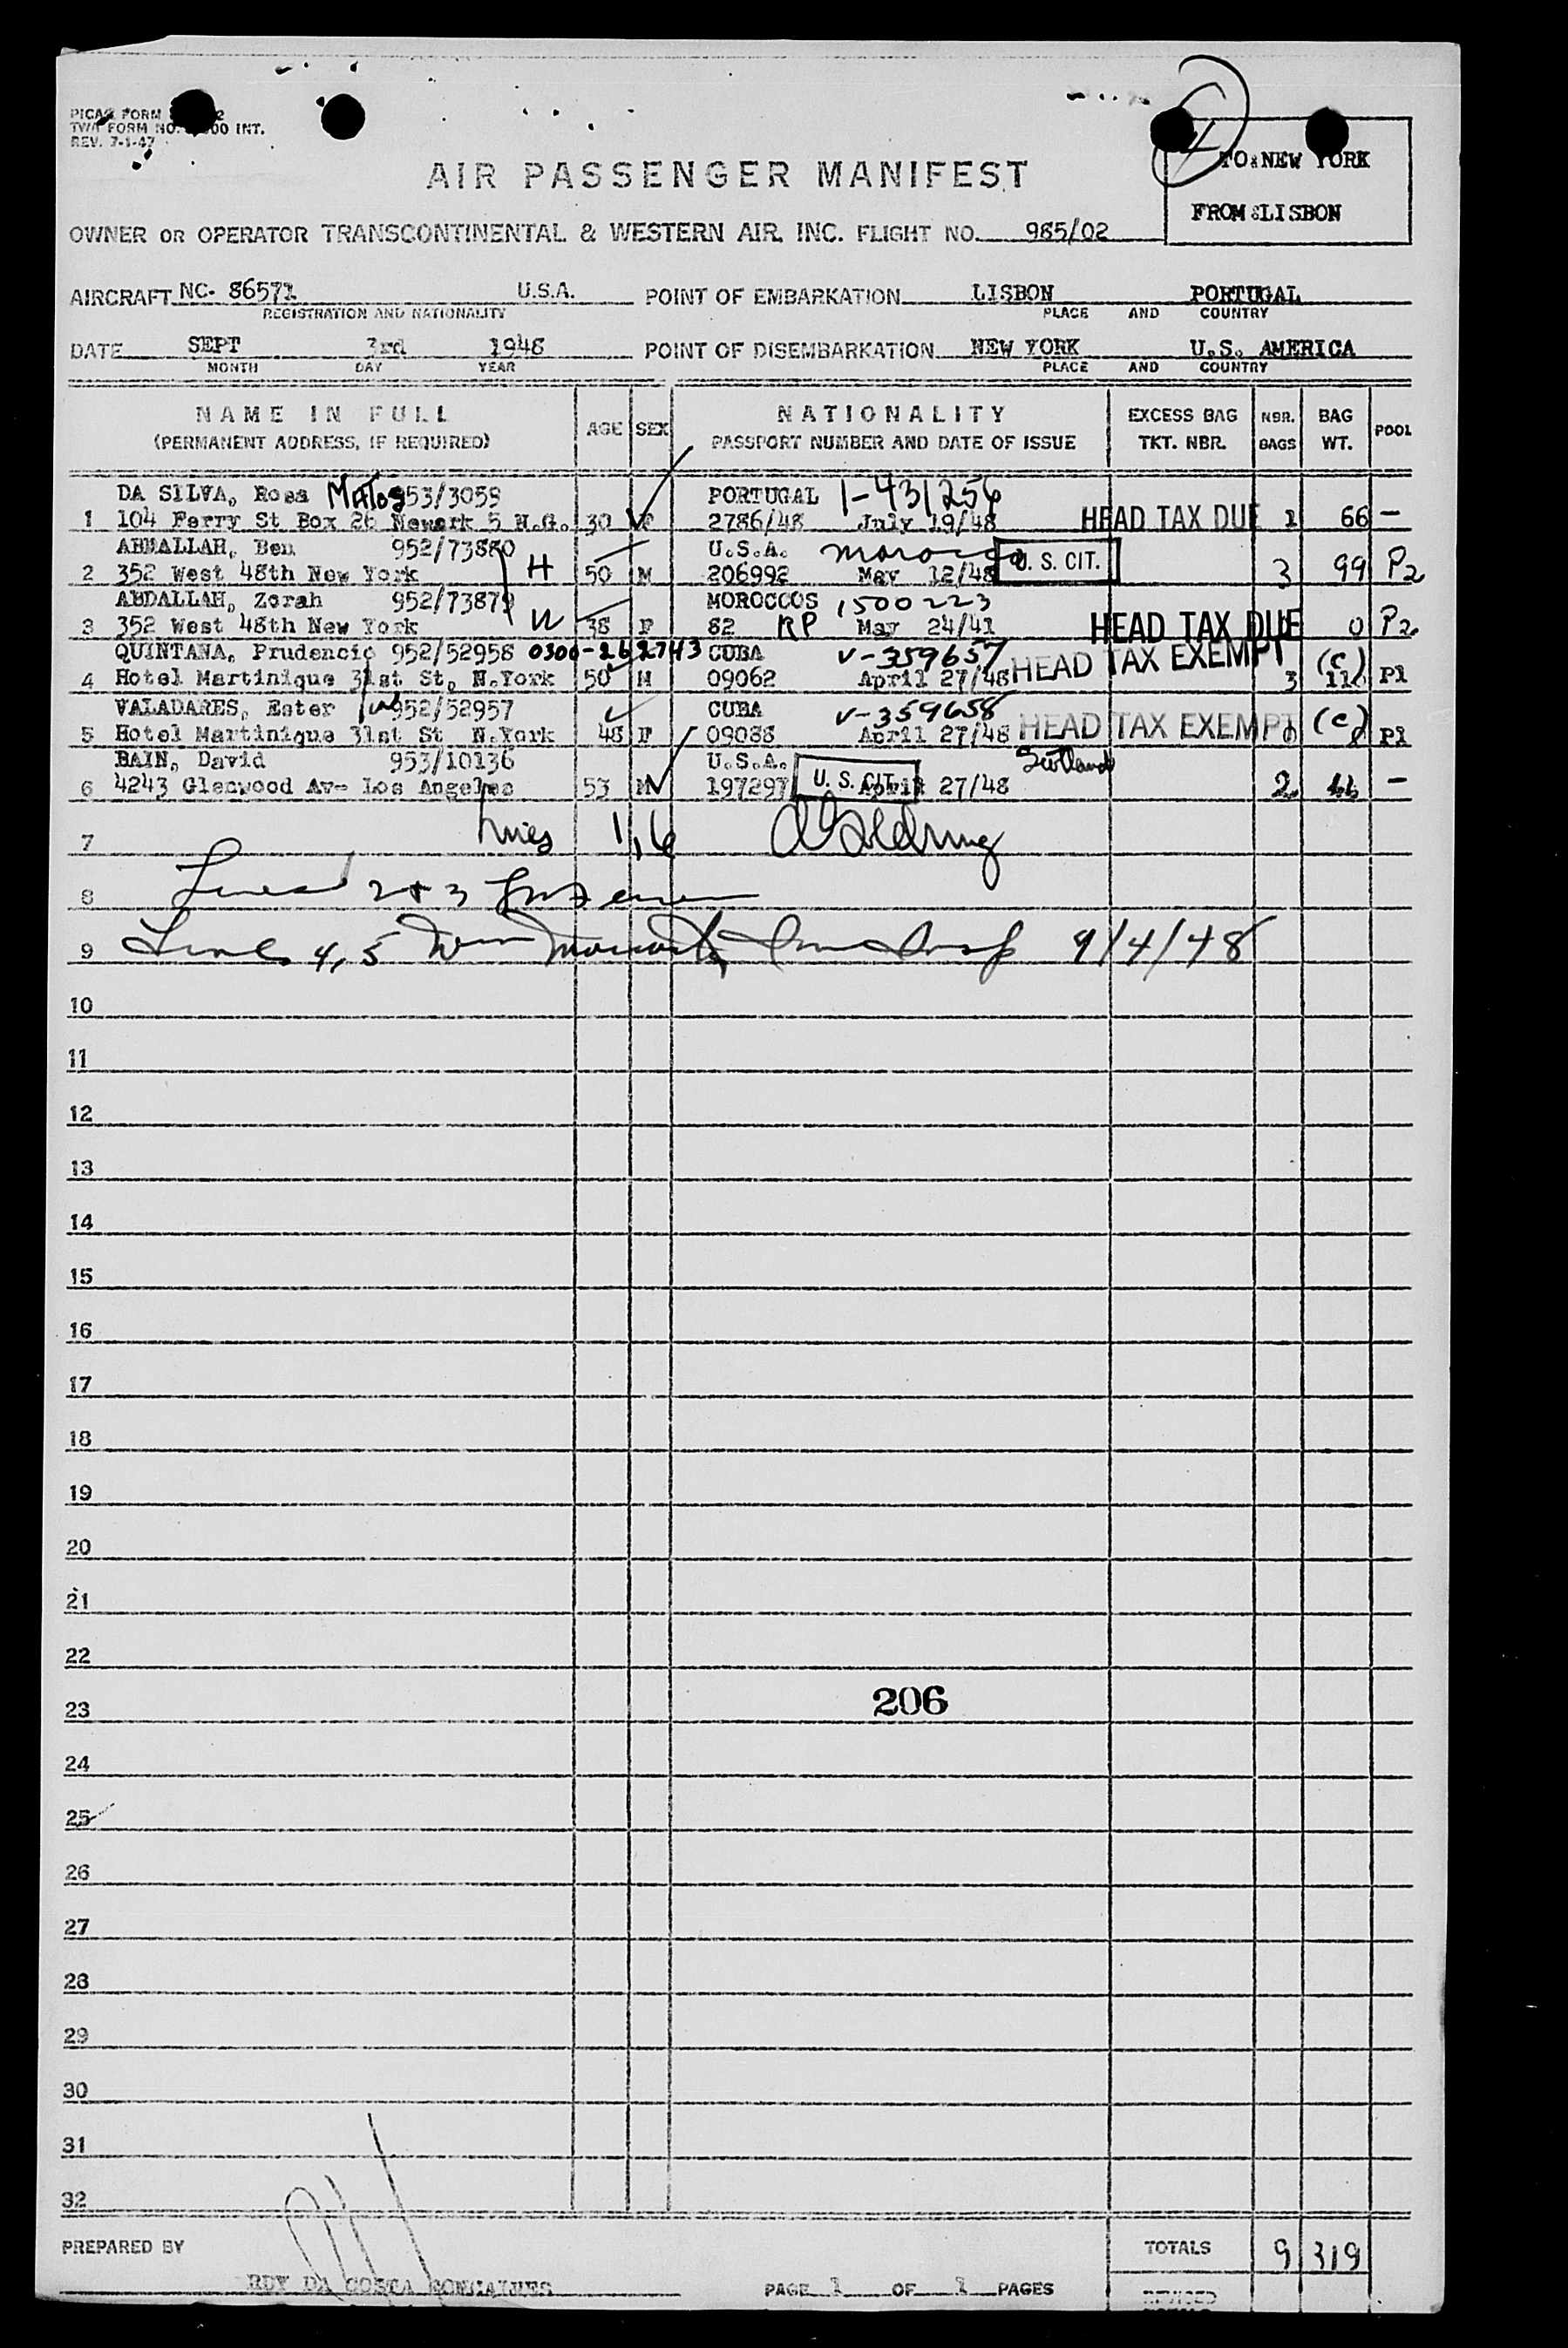 PICAO FORM
TWA FORM NO. 00 INT.
REV. 7-1-47
AIR PASSENGER MANIFEST
TO:NEW YORK
FROM:LISBON
OWNER OR OPERATOR TRANSCONTINENTAL & WESTERN AIR, INC. FLIGHT NO. 965/02
AIRCRAFT NC- 86571 U.S.A. POINT OF EMBARKATION LISBON PORTUGAL
REGISTRATION AND NATIONALITY PLACE AND COUNTRY
DATE SEPT 3rd 1948 POINT OF DISEMBARKATION NEW YORK U.S. AMERICA
MONTH DAY YEAR PLACE AND COUNTRY
NAME IN FULL AGE SEX NATIONALITY EXCESS BAG NBR. BAG POOL
(PERMANENT ADDRESS, IF REQUIRED) PASSPORT NUMBER AND DATE OF ISSUE TKT. NBR. BAGS WT.
DA SILVA, Rosa Matos 953/3059 PORTUGAL 1-431256
1 104 Ferry St Box 26 Newark 5 N.G. 30 F 2786/48 July 19/48 HEAD TAX DUE 1 66 -
ABDALLAH, Ben 952/73880 U.S.A. morocco
2 352 West 48th New York H 50 M 206992 May 12/48 U. S. CIT. 3 99 P2
ABDALLAH, Zorah 952/73879 MOROCCOS 1500223
3 352 West 48th New York W 38 F 82 RP May 24/41 HEAD TAX DUE 0 P2
QUINTANA, Prudencio 952/52958 0300-262743 CUBA V-359657 (c)
4 Hotel Martinique 31st St, N.York 50 M 09062 April 27/48 HEAD TAX EXEMPT 3 P1
VALADARES, Ester W 952/52957 CUBA V-359658
5 Hotel Martinique 31st St N.York 48 F 09088 April 27/48 HEAD TAX EXEMPT (c) P1
BAIN, David 953/10136 U.S.A. Scotland
6 4243 Glenwood Av- Los Angeles 53 M 197297 U. S. CIT. April 27/48 2 -
7 Lines 1,6
8 Lines 2+3
9 Lines 4,5 Wm 9/4/48
10
11
12
13
14
15
16
17
18
19
20
21
22
23 206
24
25
26
27
28
29
30
31
32
PREPARED BY TOTALS 9 319
DA COSTA GONCALVES PAGE 1 OF 1 PAGES REVISED